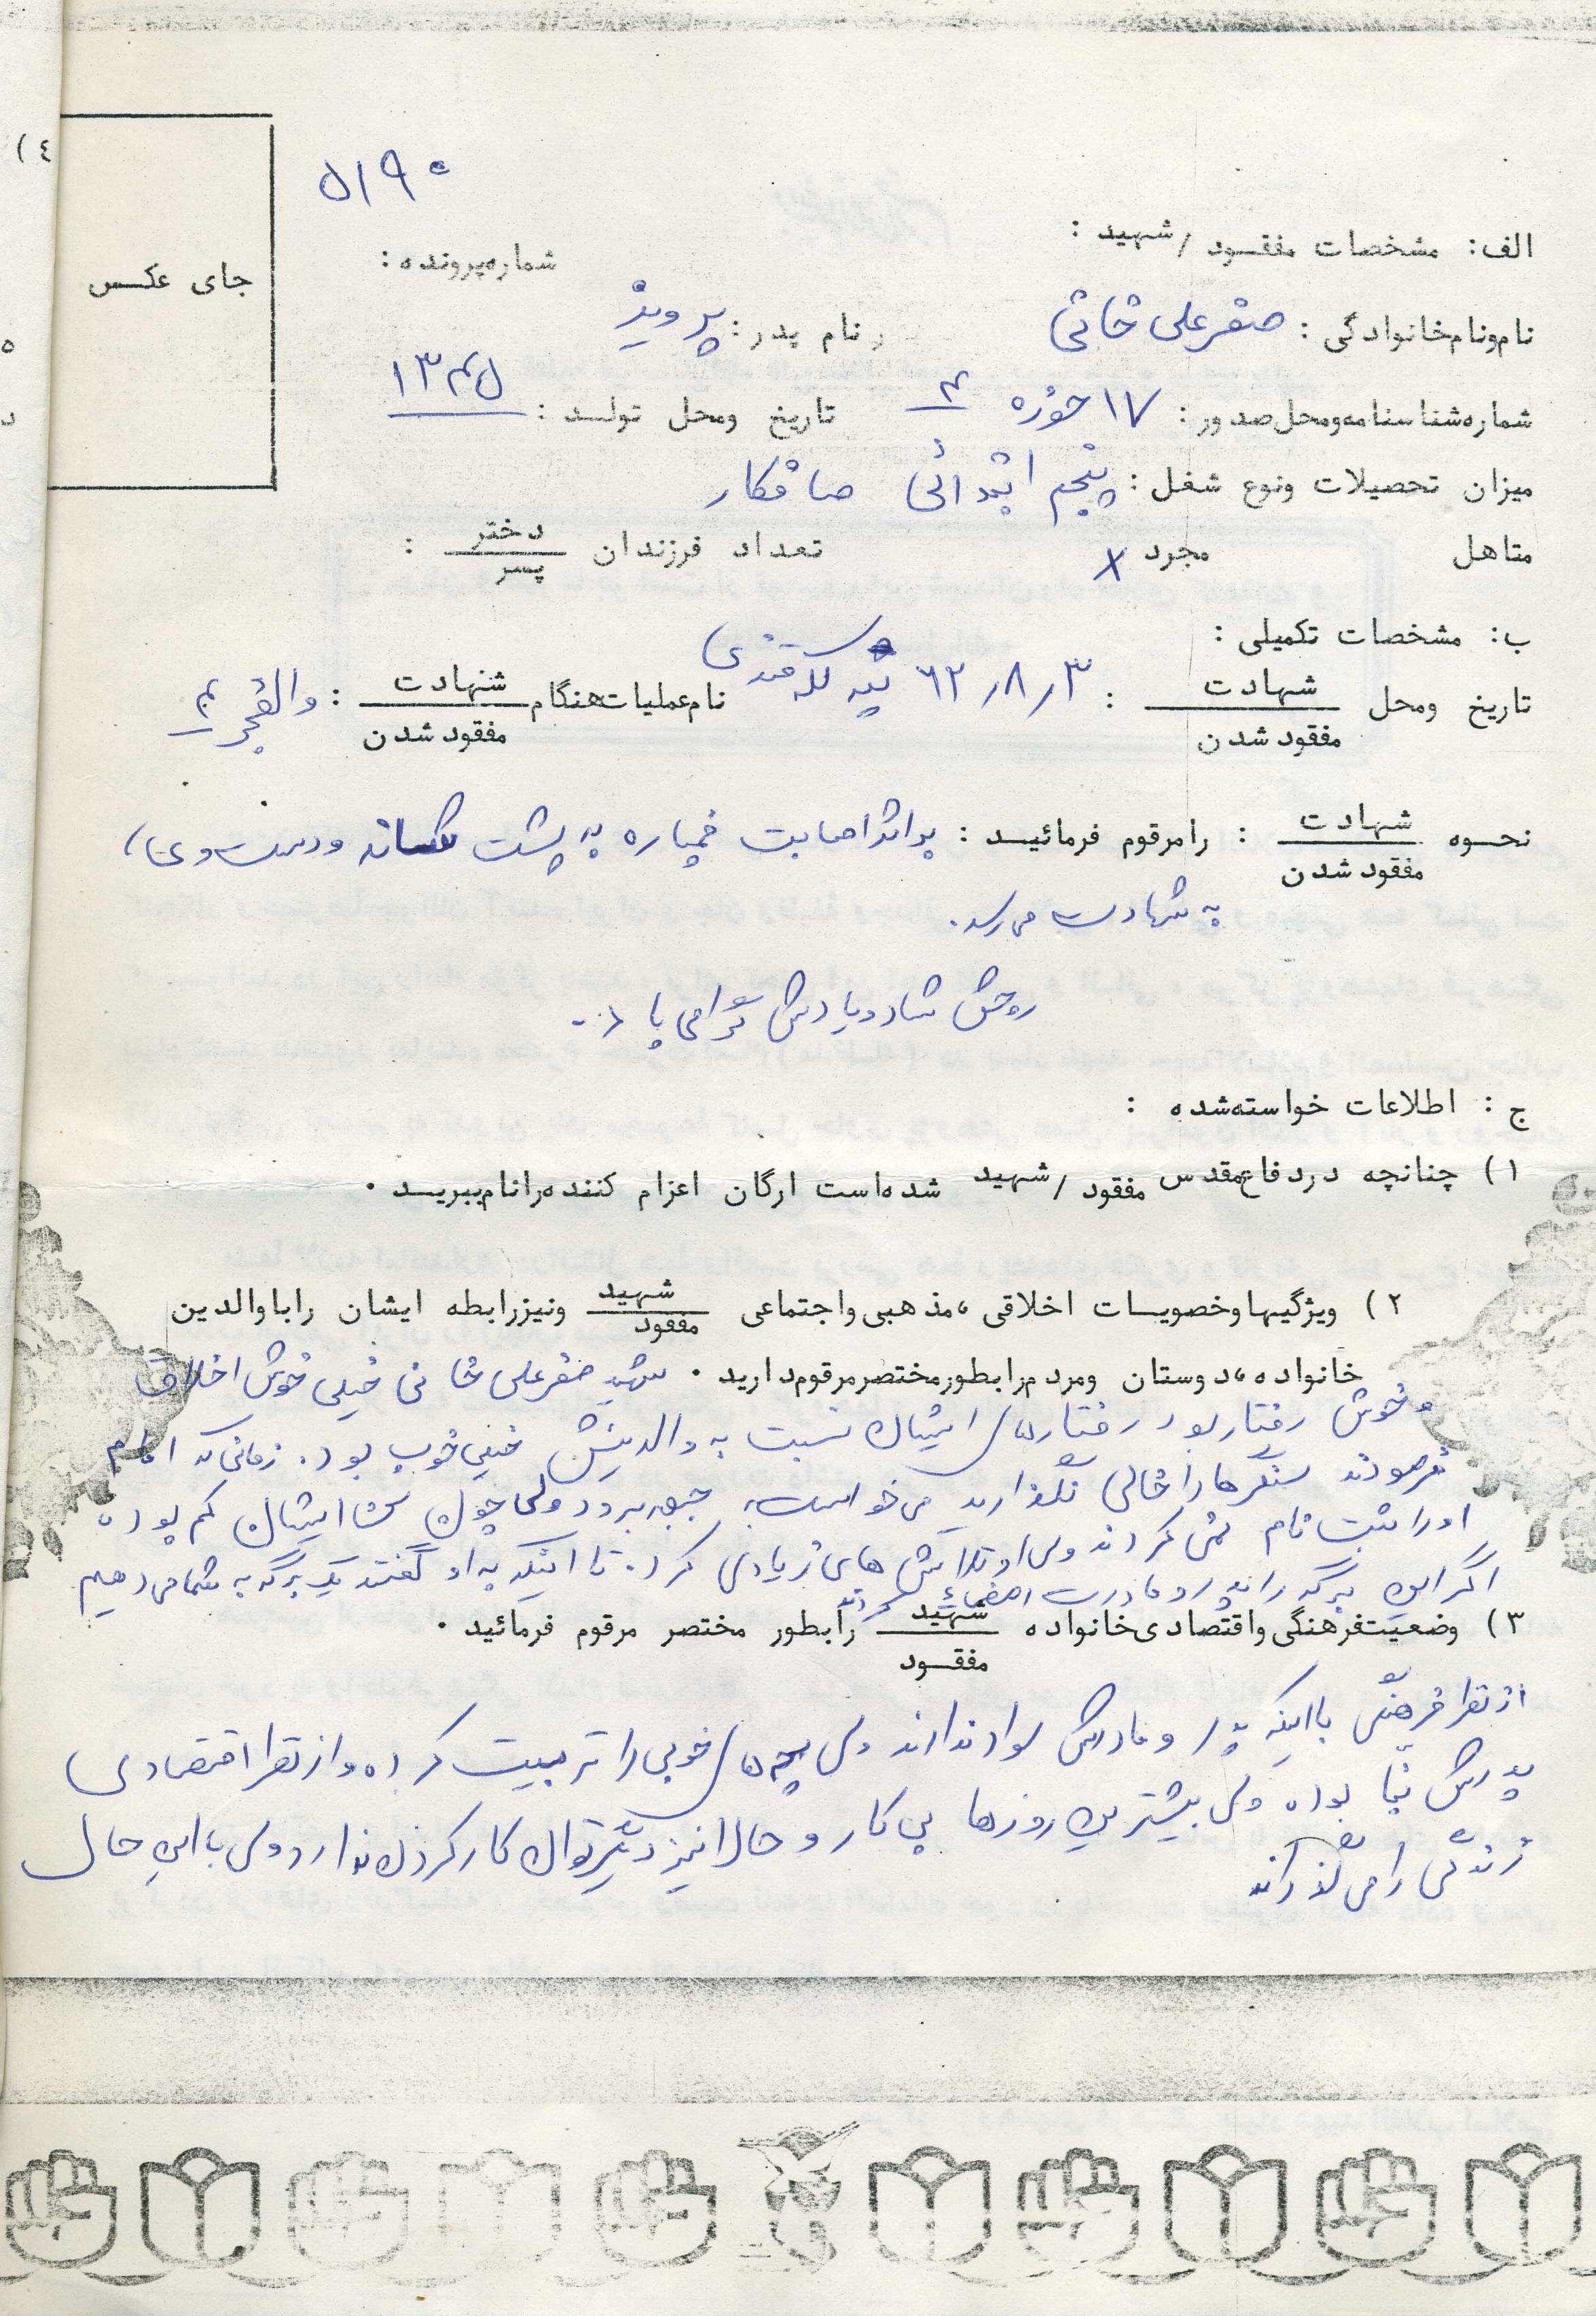 ۵۱۹۰
جای عکس
الف: مشخصات مفقود / شهید :
شماره پرونده :
نام و نام خانوادگی : صفر علی خانی
نام پدر : پرویز
شماره شناسنامه و محل صدور : ۱۷ حوزه ۴
تاریخ و محل تولد : ۱۳۴۵
میزان تحصیلات و نوع شغل : پنجم ابتدائی صافکار
متاهل مجرد x تعداد فرزندان دختر / پسر :
ب: مشخصات تکمیلی :
تاریخ و محل شهادت / مفقود شدن : ۶۲/۸/۳ تپه کله قندی
نام عملیات هنگام شهادت / مفقود شدن : والفجر ۴
نحوه شهادت / مفقود شدن : را مرقوم فرمائید : براثر اصابت خمپاره به پشت و دست و
به شهادت می رسد.
روحش شاد و یادش گرامی باد.
ج : اطلاعات خواسته شده :
۱) چنانچه در دفاع مقدس مفقود / شهید شده است ارگان اعزام کننده را نام ببرید .
۲) ویژگیها و خصویات اخلاقی ، مذهبی و اجتماعی شهید / مفقود و نیز رابطه ایشان را با والدین
خانواده ، دوستان و مردم را بطور مختصر مرقوم دارید . شهید صفر علی خانی خیلی خوش اخلاق
و خوش رفتار بود رفتارهای ایشان نسبت به والدینش خیلی خوب بود. زمانی که امام
فرمودند سنگرها را خالی نگذارید می خواست به جبهه برود ولی چون سن ایشان کم بوده
او را ثبت نام نمی کردند ولی او تلاش های زیادی کرد. تا اینکه به او گفتند یک برگه به شما می دهیم
اگر این برگه را پدر و مادرت امضاء کردند
۳) وضعیت فرهنگی و اقتصادی خانواده شهید / مفقود را بطور مختصر مرقوم فرمائید .
از نظر فرهنگی با اینکه پدر و مادرش سواد ندارند ولی بچه های خوبی را تربیت کرده و از نظر اقتصادی
پدرش بنا بوده ولی بیشترین روزها بی کار و حالا نیز دیگر توان کار کردن ندارد ولی با این حال
زندگی را می گذراند